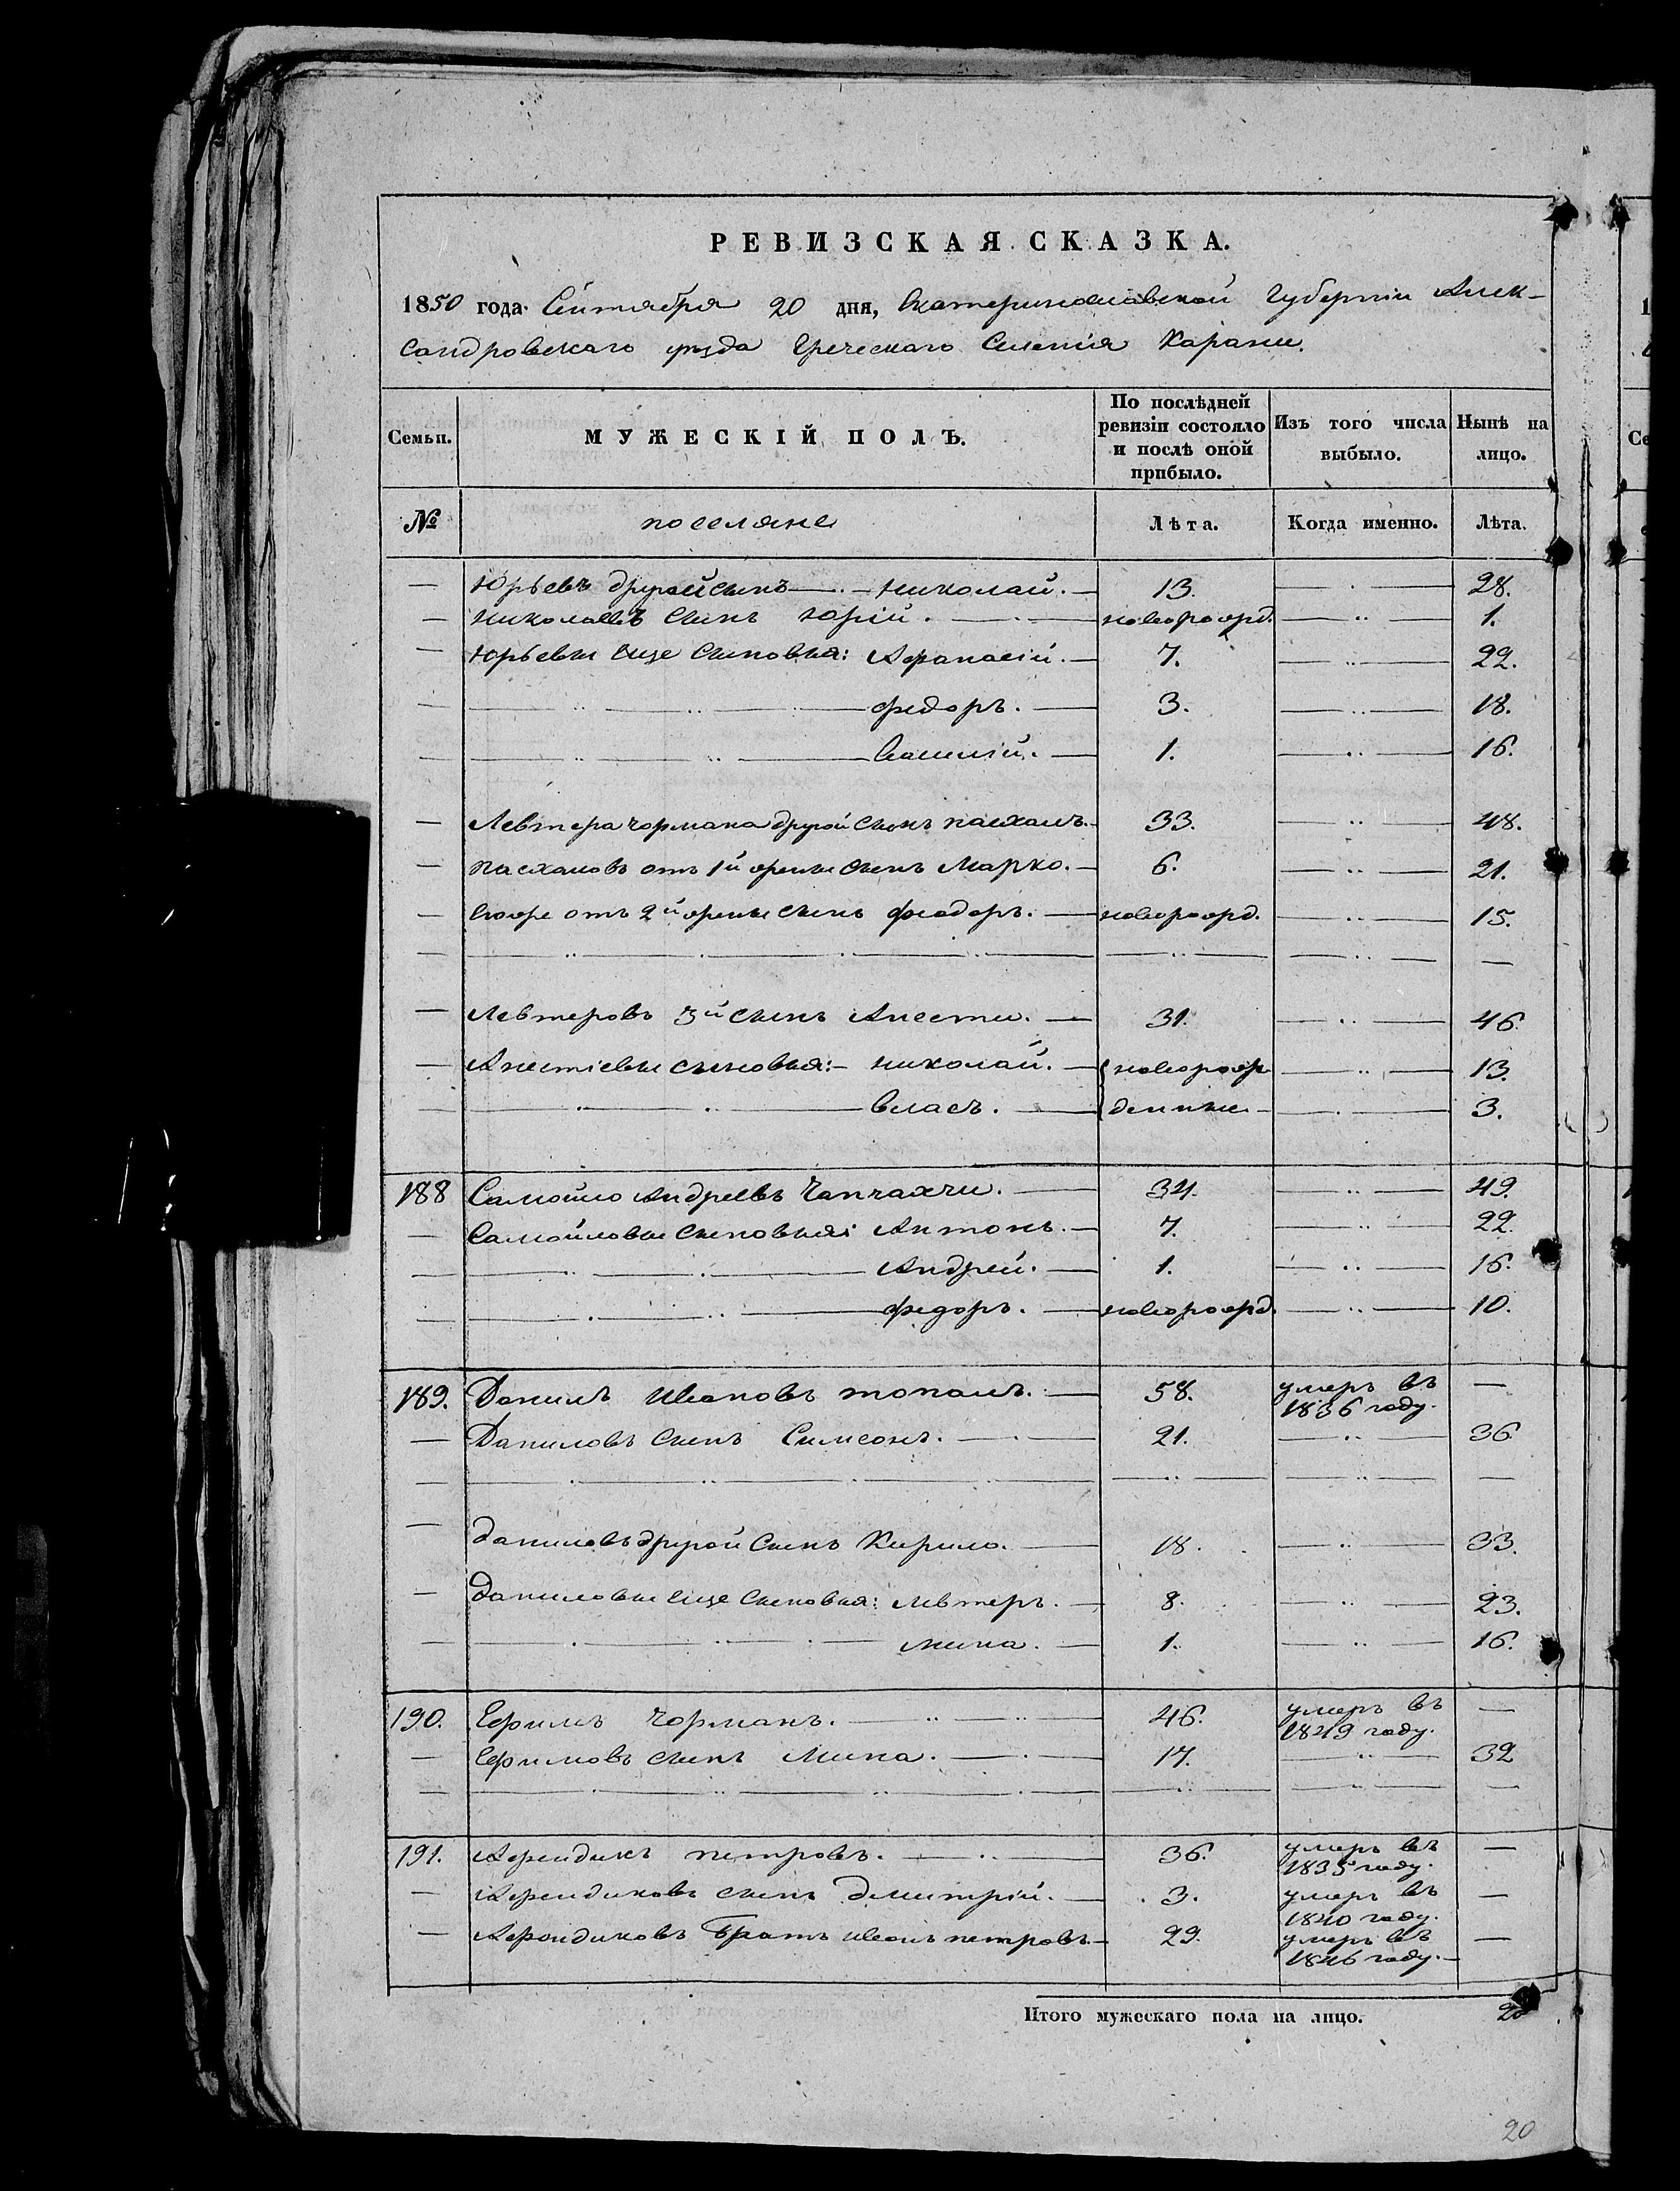 РЕВИЗСКАЯ СКАЗКА.
1850 года Сентября 20 дня, Екатеринославской Губерніи Алек-
сандровскаго уѣзда Греческаго Селенія Карани.
Семьи. МУЖЕСКІЙ ПОЛЪ. По послѣдней ревизіи состояло и послѣ оной прибыло. Изъ того числа выбыло. Нынѣ на лицо.
№ поселяне Лѣта. Когда именно. Лѣта.
— Юрьевъ другой сынъ — Николай. — 13. — 28.
— Николаевъ сынъ Юрій. — новорожд. — 1.
— Юрьевы еще сыновья: Афанасій. — 7. — 22.
— Федоръ. — 3. — 18.
— Василій. — 1. — 16.
— Левтера Чормана другой сынъ Пасхалъ. — 33. — 48.
— Пасхаловъ отъ 1й жены сынъ Марко. — 6. — 21.
— Егоже отъ 2й жены сынъ Феодоръ. — новорожд. — 15.
— Левтеровъ 3й сынъ Анести. — 31. — 46.
— Анестіевы сыновья: — Николай. — новорож- — 13.
— Власъ. — денные — 3.
188 Самойло Андреевъ Чапчахчи. — 34. — 49.
— Самойловы сыновья: Антонъ. — 7. — 22.
— Андрей. — 1. — 16.
— Федоръ. — новорожд. — 10.
189. Данилъ Ивановъ Топалъ. — 58. умеръ въ 1836 году. —
— Даниловъ сынъ Симеонъ. — 21. — 36
— Даниловъ другой сынъ Кирило. — 18. — 33.
— Даниловы еще сыновья: Левтеръ. — 8. — 23.
— Мина. — 1. — 16.
190. Ефимъ Чорманъ. — 46. умеръ въ 1849 году. —
— Ефимовъ сынъ Мина. — 17. — 32
191. Афендикъ Петровъ. — 36. умеръ въ 1835 году. —
— Афендиковъ сынъ Дмитрій. — 3. умеръ въ 1840 году. —
— Афендиковъ братъ Иванъ Петровъ — 29. умеръ въ 1846 году. —
Итого мужескаго пола на лицо.
20